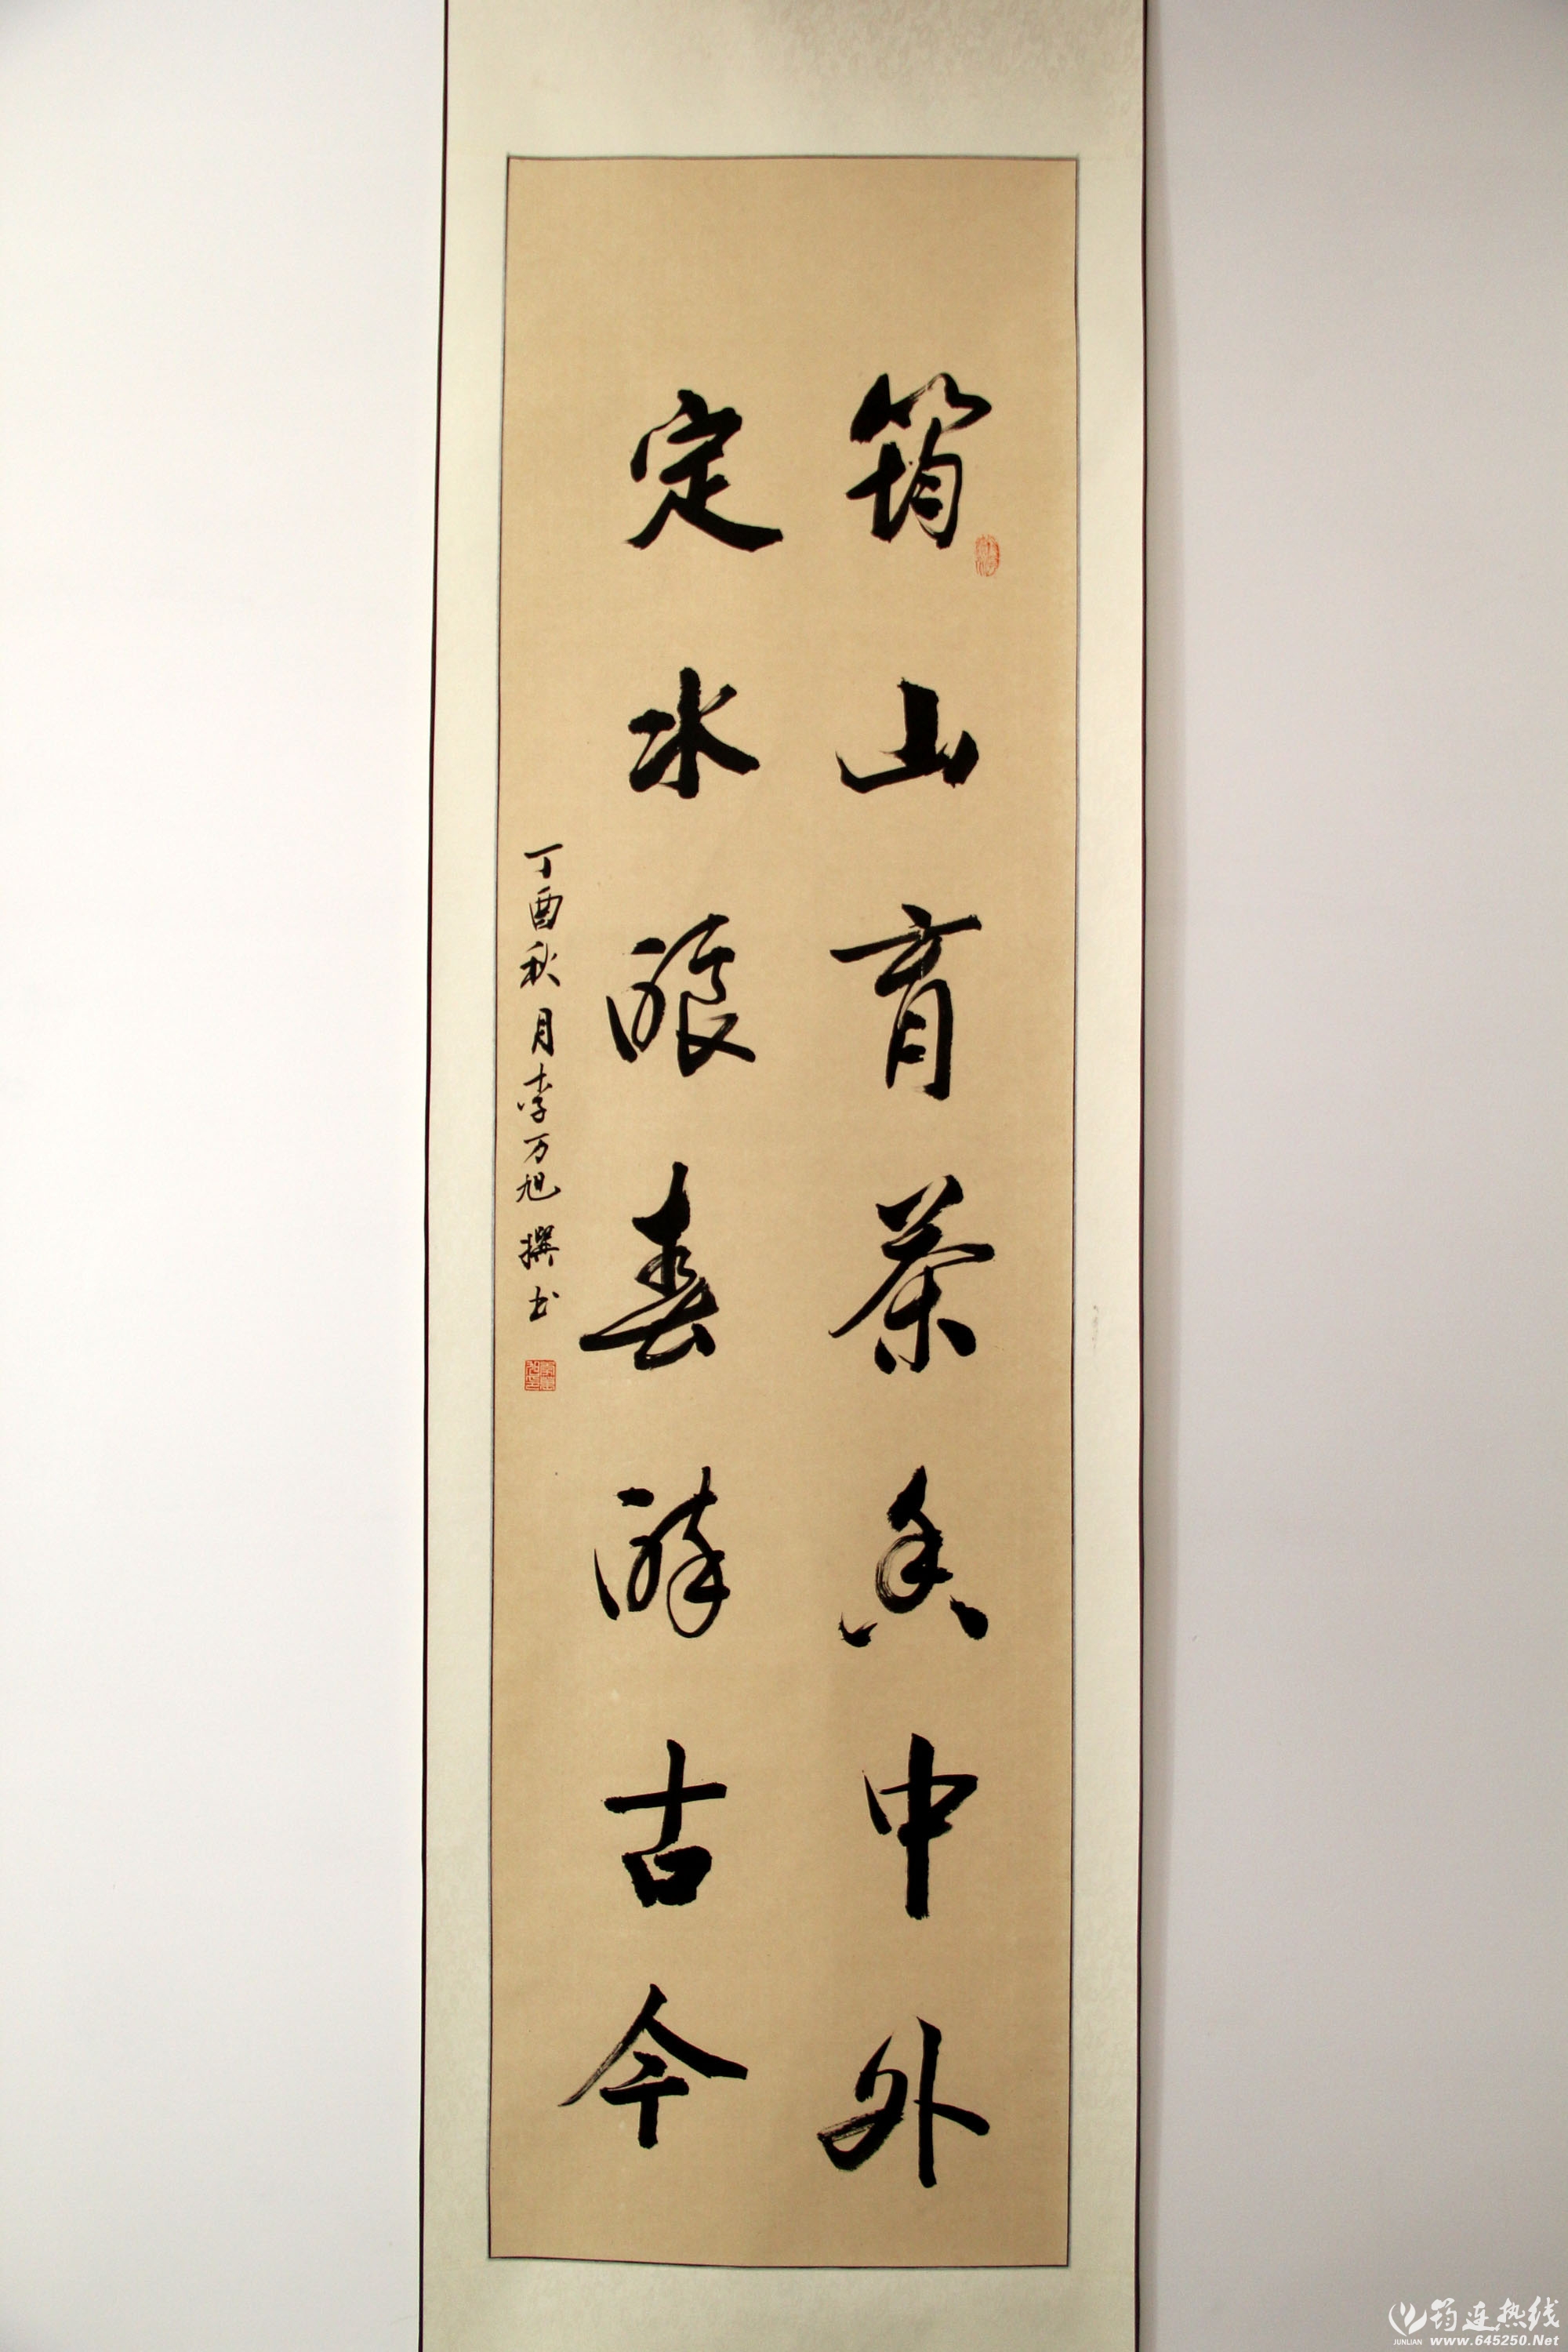 筠山育茶香中外
定水酿春醉古今
丁酉秋月李万旭撰书
筠连热线
JUNLIAN www.645250.Net